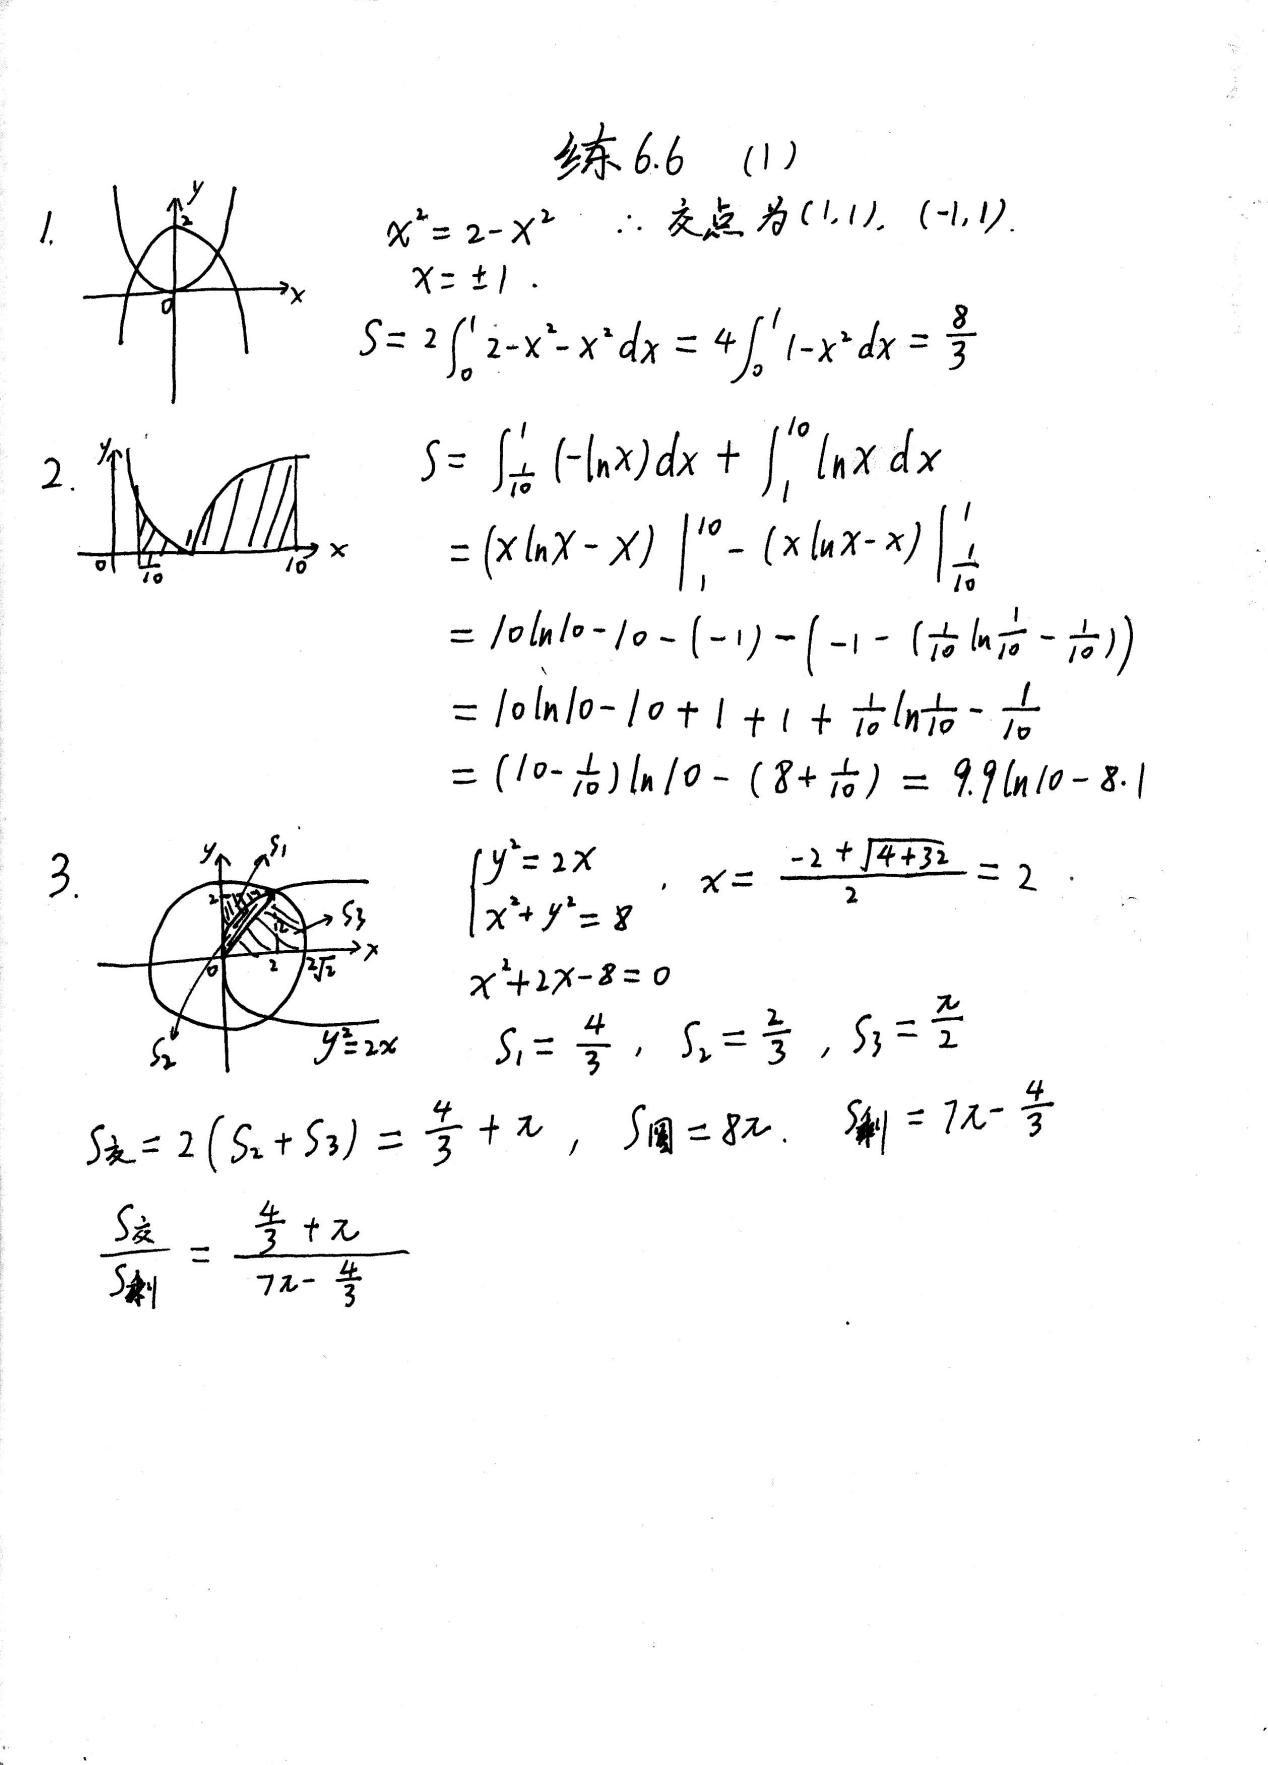 练6.6 (1)
1.
y
2
0
x
x² = 2-x² ∴ 交点为(1,1), (-1,1).
x = ±1.
S = 2∫₀¹ 2-x²-x² dx = 4∫₀¹ 1-x² dx = 8/3
2.
y
0 1/10 1 10 x
S = ∫_{1/10}^{1} (-lnx)dx + ∫_{1}^{10} lnx dx
= (xlnx - x) |_{1}^{10} - (xlnx-x) |_{1/10}^{1}
= 10ln10-10-(-1)-(-1-(1/10 ln 1/10 - 1/10))
= 10ln10-10+1+1+1/10 ln 1/10 - 1/10
= (10-1/10)ln10-(8+1/10) = 9.9ln10-8.1
3.
y S₁
2
S₃
0 2 2√2 x
S₂ y²=2x
{ y²=2x
x²+y²=8 , x = (-2+√(4+32))/2 = 2.
x²+2x-8=0
S₁ = 4/3, S₂ = 2/3, S₃ = π/2
S交 = 2(S₂+S₃) = 4/3+π, S圆 = 8π. S剩 = 7π-4/3
S交/S剩 = (4/3+π)/(7π-4/3)